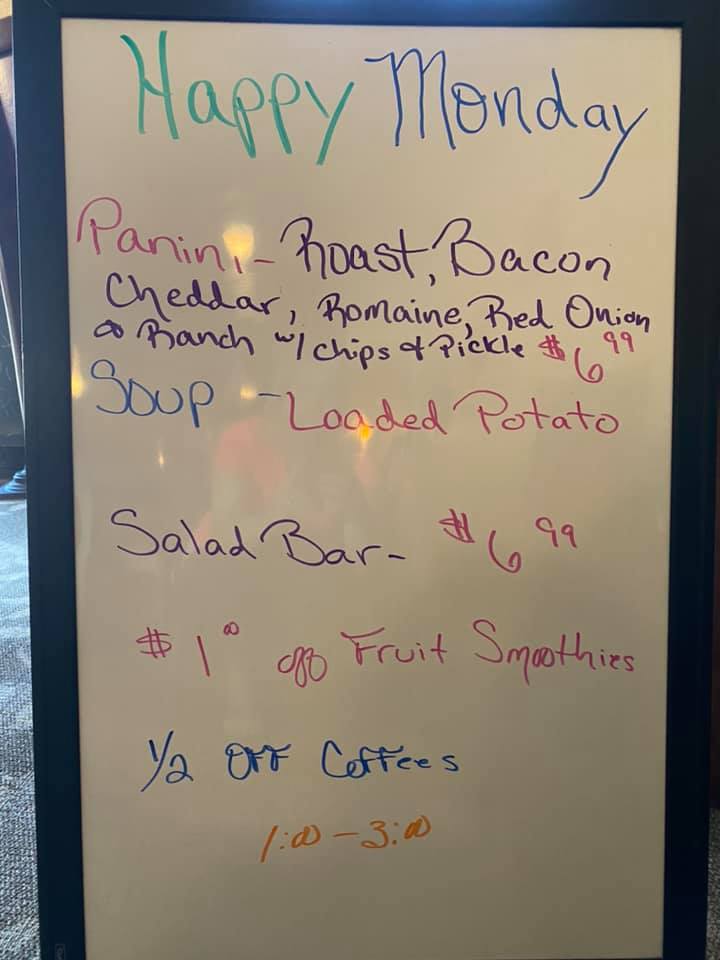 Happy Monday
Panini - Roast, Bacon
Cheddar, Romaine, Red Onion
& Ranch w/ chips & Pickle $6.99
Soup - Loaded Potato
Salad Bar - $6.99
$1.00 off Fruit Smoothies
1/2 OFF Coffees
1:00 - 3:00